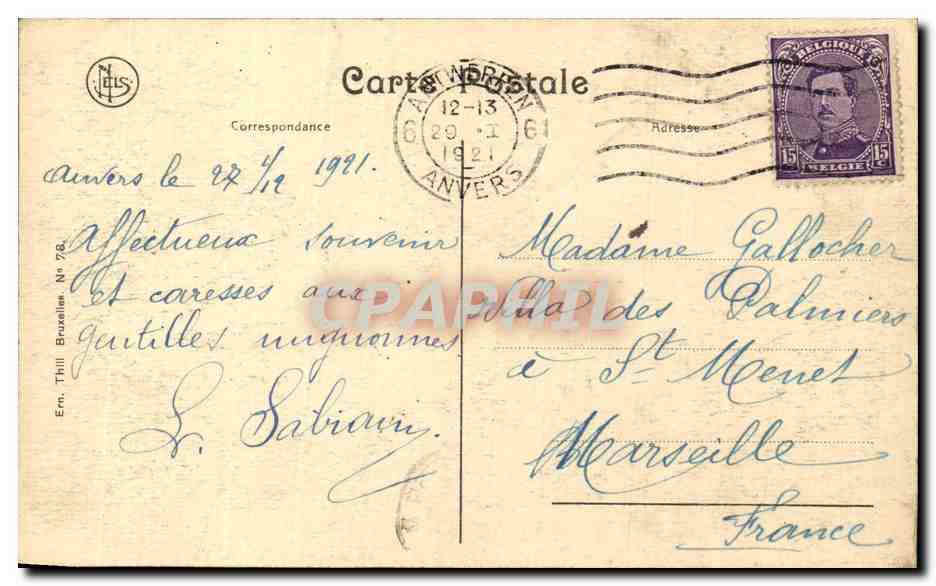 NELS
Carte Postale
ANTWERPEN
6 12-13 6
29 I
1921
ANVERS
BELGIQUE
15 15
BELGIE
Correspondance
Adresse
Anvers le 27/12 1921.
Affectueux souvenir
et caresses aux
gentilles mignonnes
L. Sabiany.
Ern. Thill Bruxelles. No 78.
Madame Gallocher
Villa des Palmiers
à St Menet
Marseille
France
CPAPHIL